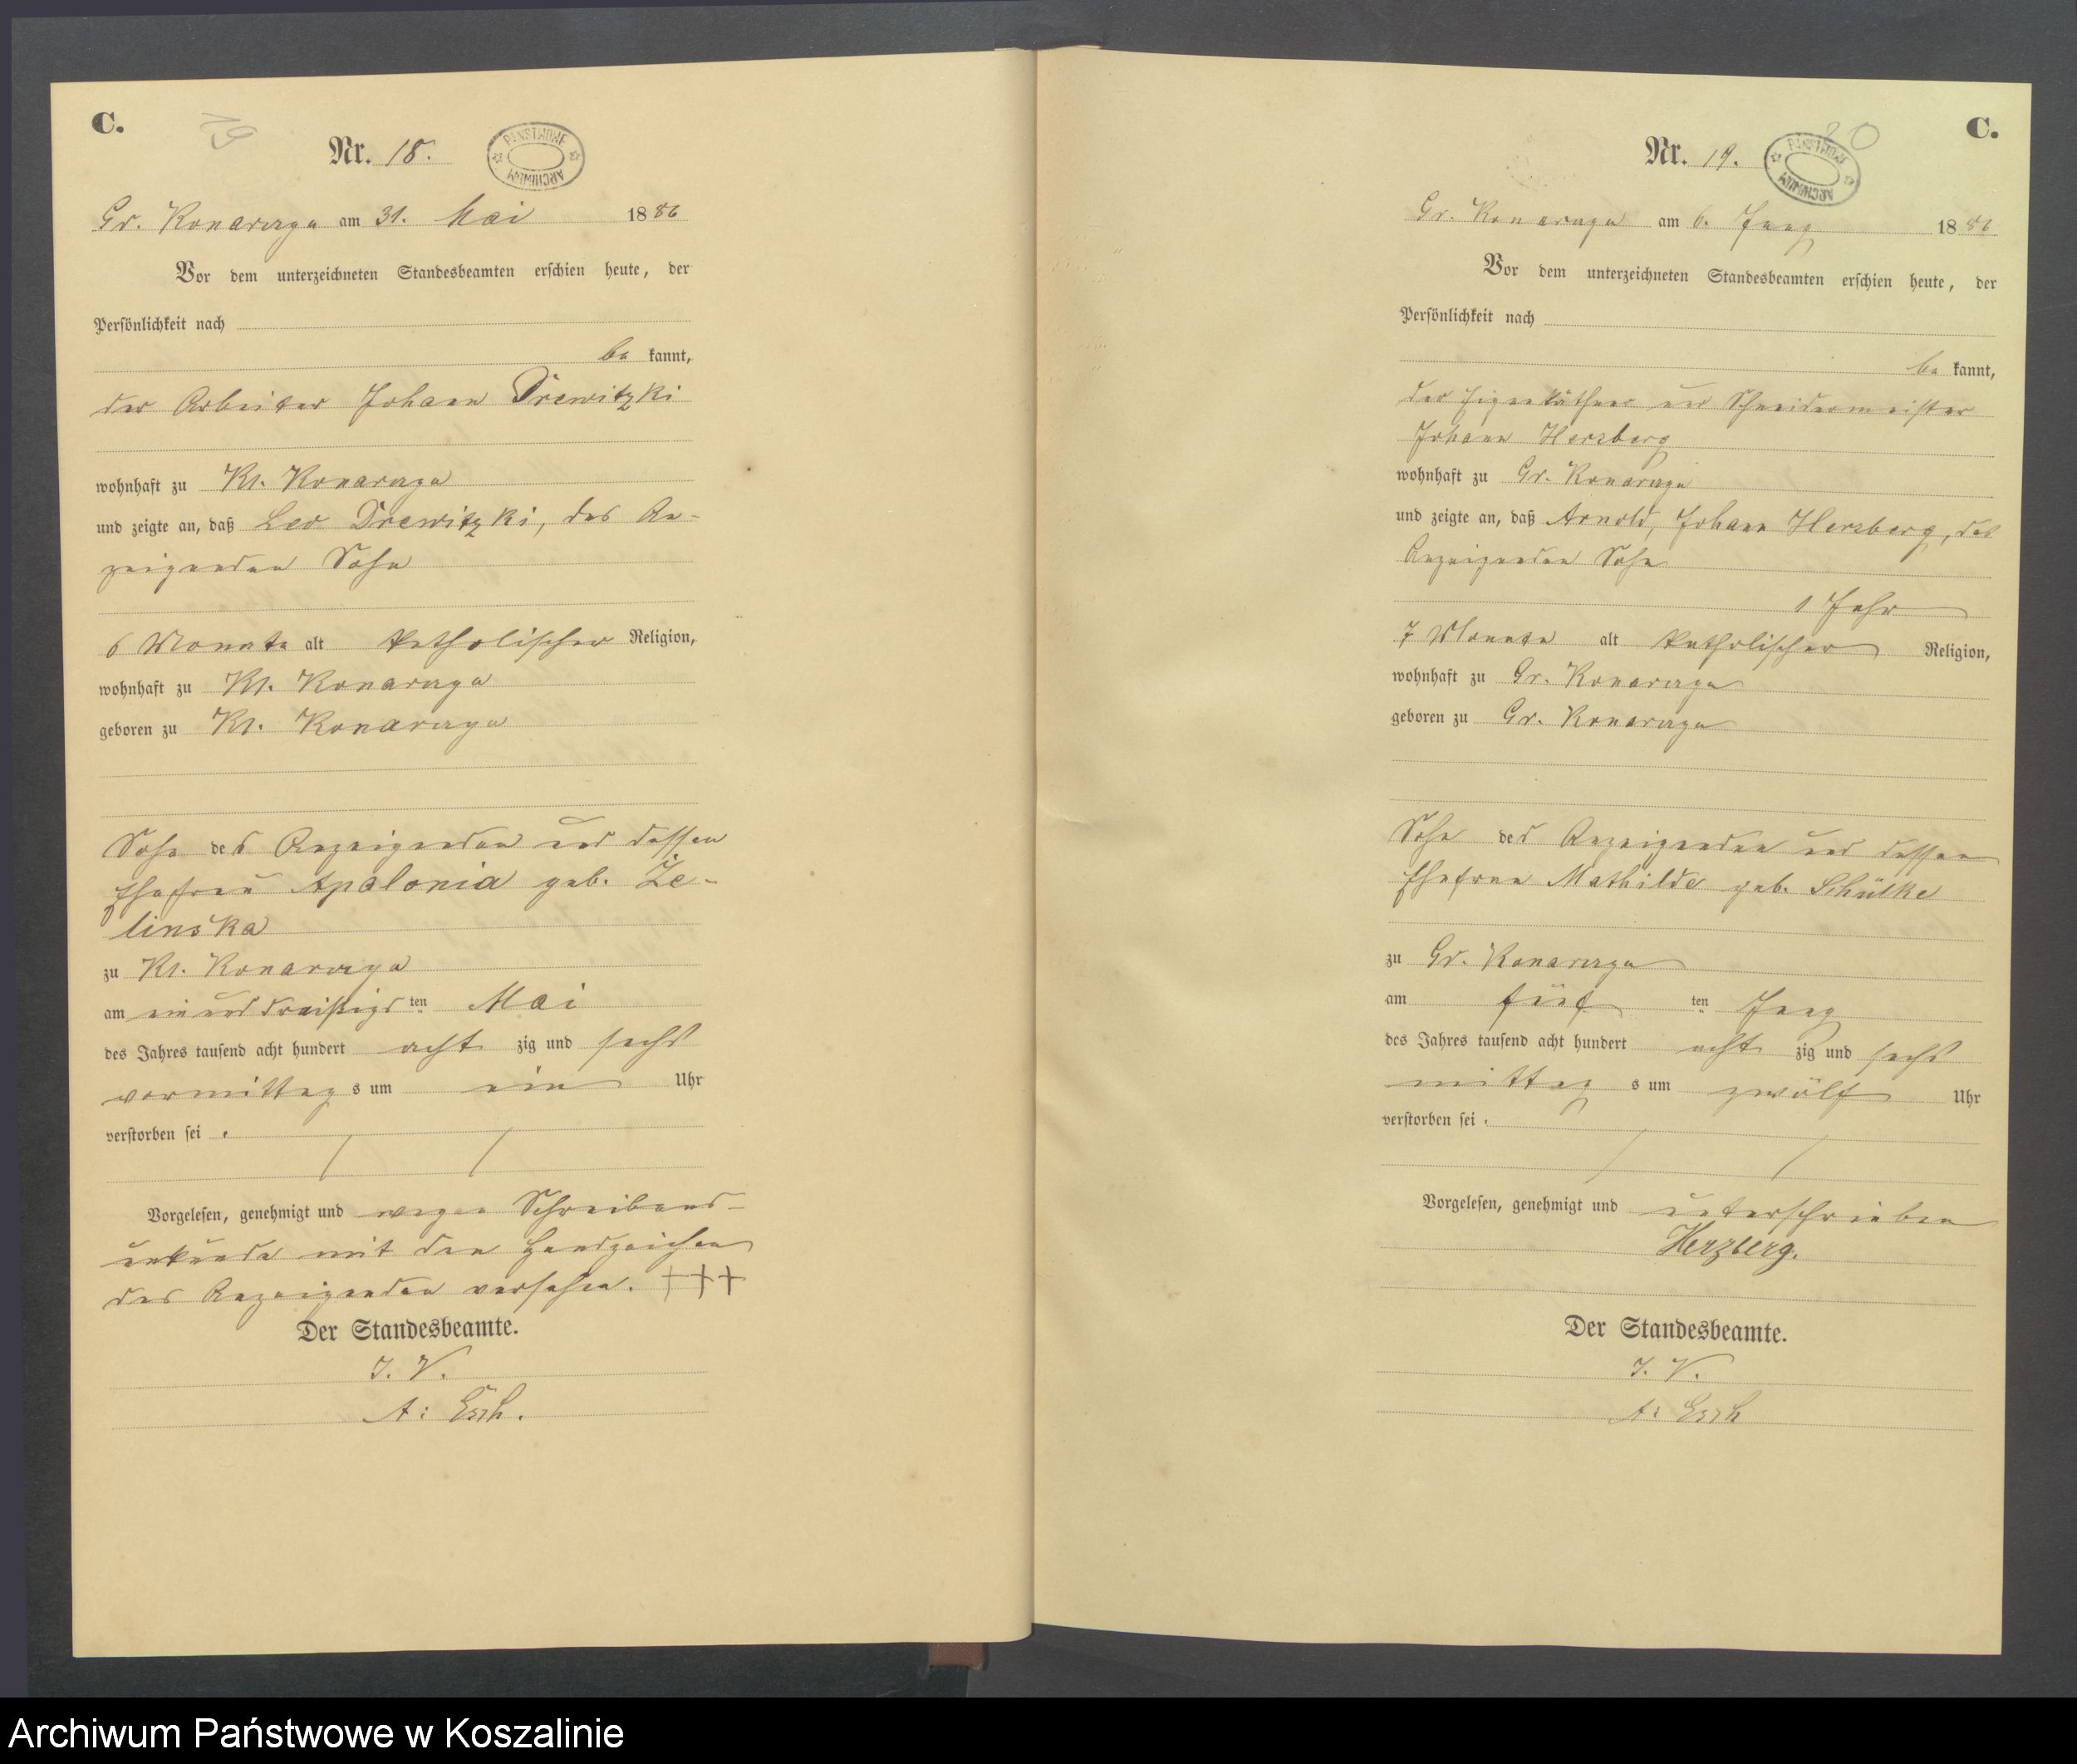 C.
19
Nr. 18.
PAŃSTWOWE
ARCHIWUM
Gr. Konarczyn am 31. Mai 1886
Vor dem unterzeichneten Standesbeamten erschien heute, der
Persönlichkeit nach
be kannt,
der Arbeiter Johann Drewitzki
wohnhaft zu Kl. Konarczyn
und zeigte an, daß Leo Drewitzki, des An-
zeigenden Sohn
6 Monate alt katholischer Religion,
wohnhaft zu Kl. Konarczyn
geboren zu Kl. Konarczyn
Sohn des Anzeigenden und dessen
Ehefrau Apolonia geb. Ze-
linska
zu Kl. Konarczyn
am ein und dreißigsten Mai
des Jahres tausend acht hundert acht zig und sechs
vormittags um ein Uhr
verstorben sei.
Vorgelesen, genehmigt und wegen Schreibens-
unkunde mit den Handzeichen
des Anzeigenden versehen. +++
Der Standesbeamte.
I. V.
A: Esch.
C.
20
Nr. 19.
PAŃSTWOWE
ARCHIWUM
Gr. Konarczyn am 6. 1886
Vor dem unterzeichneten Standesbeamten erschien heute, der
Persönlichkeit nach
be kannt,
der Eigenkäthner und Schneidermeister
Johann Herzberg
wohnhaft zu Gr. Konarczyn
und zeigte an, daß Arnold, Johann Herzberg, des
Anzeigenden Sohn
1 Jahr
7 Monate alt katholischer Religion,
wohnhaft zu Gr. Konarczyn
geboren zu Gr. Konarczyn
Sohn des Anzeigenden und dessen
Ehefrau Mathilde geb. Schülke
zu Gr. Konarczyn
am fünf ten
des Jahres tausend acht hundert acht zig und sechs
mittags um zwölf Uhr
verstorben sei.
Vorgelesen, genehmigt und unterschrieben
Herzberg.
Der Standesbeamte.
I. V.
A: Esch
Archiwum Państwowe w Koszalinie